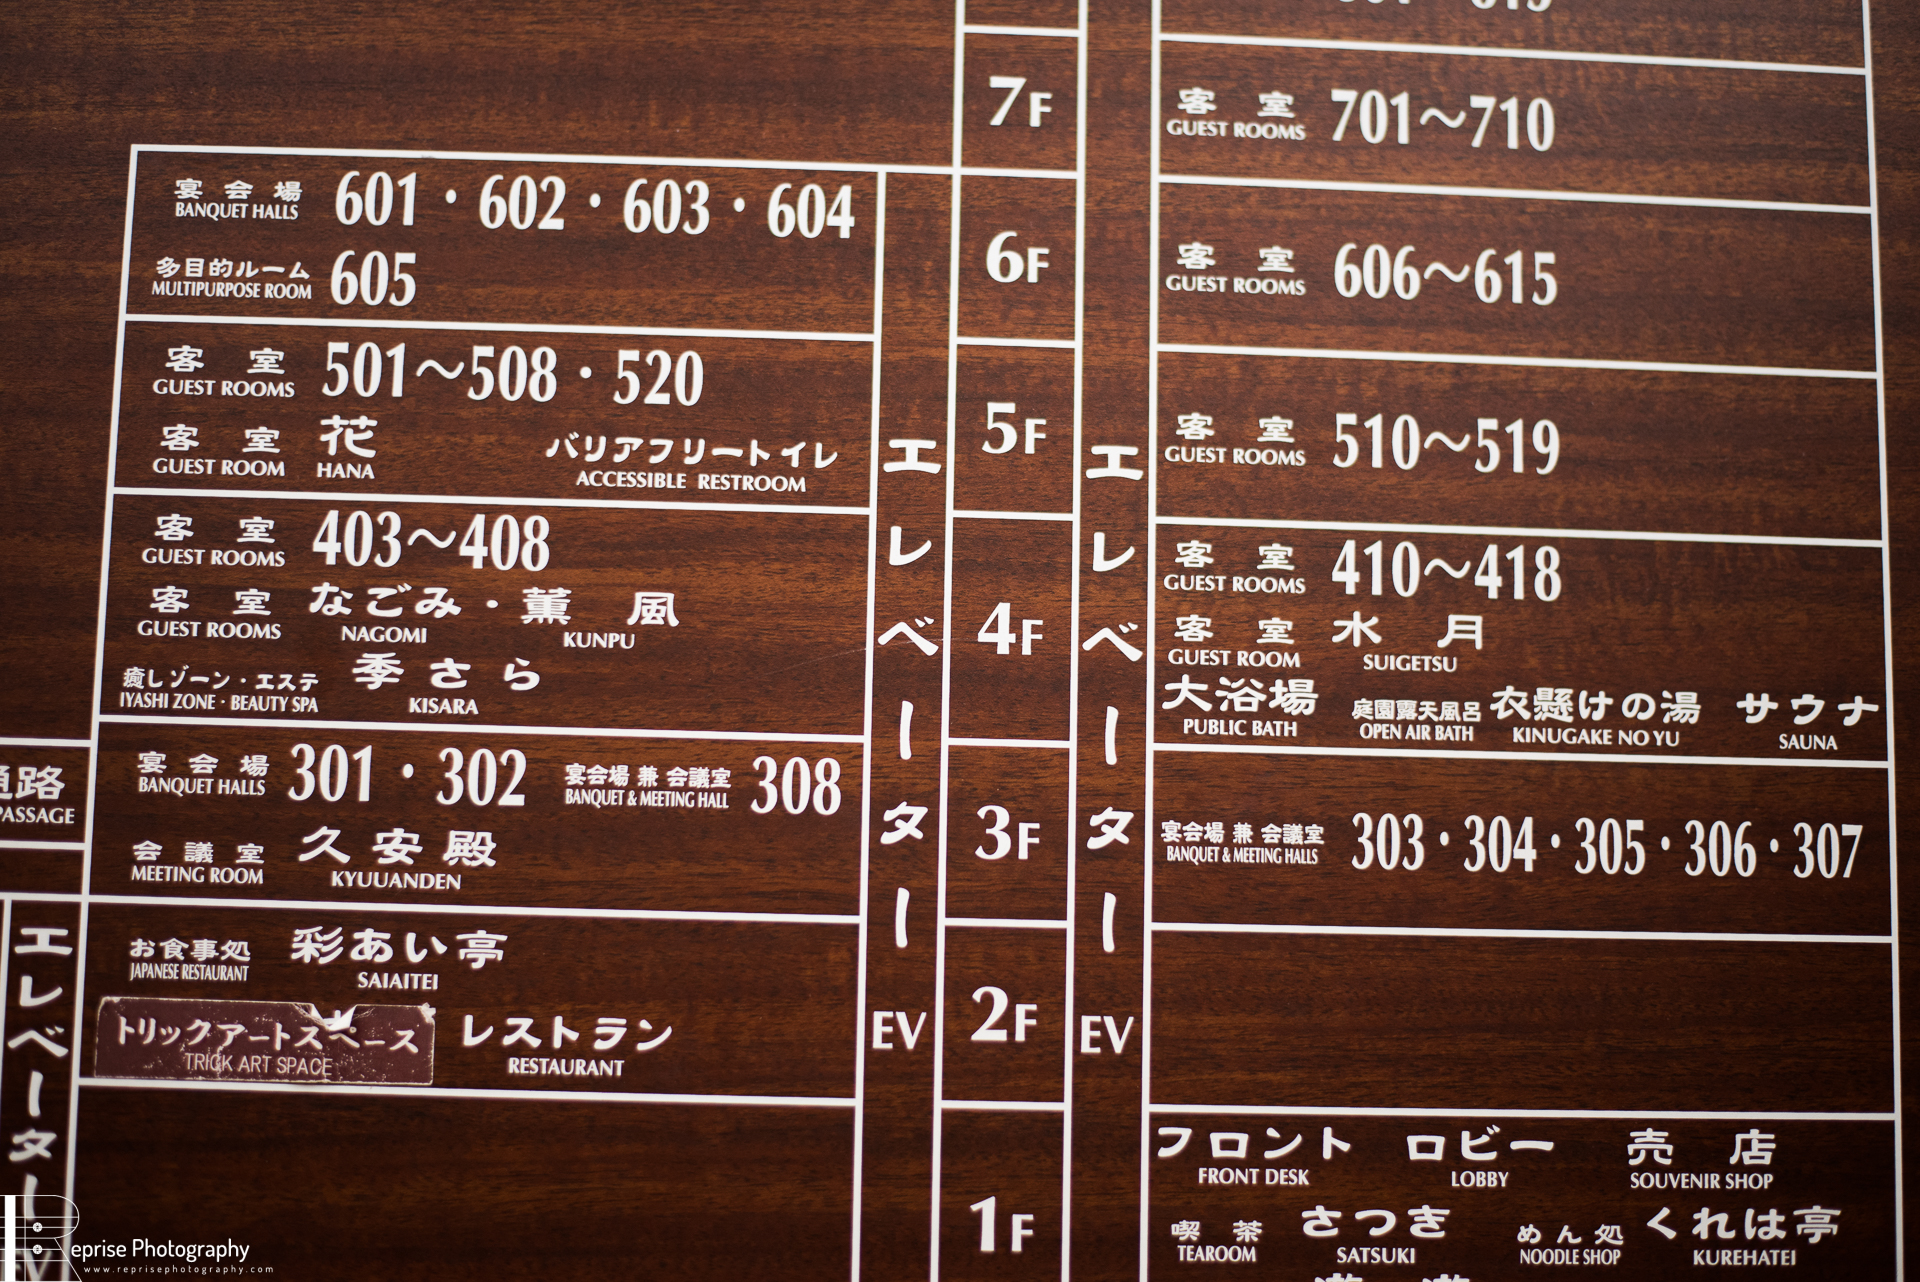 7F
客室 701～710
GUEST ROOMS
宴会場 601・602・603・604
BANQUET HALLS
多目的ルーム 605
MULTIPURPOSE ROOM
6F
客室 606～615
GUEST ROOMS
客室 501～508・520
GUEST ROOMS
客室 花 バリアフリートイレ
GUEST ROOM HANA ACCESSIBLE RESTROOM
5F
客室 510～519
GUEST ROOMS
客室 403～408
GUEST ROOMS
客室 なごみ・薫風
GUEST ROOMS NAGOMI KUNPU
癒しゾーン・エステ 季さら
IYASHI ZONE・BEAUTY SPA KISARA
4F
客室 410～418
GUEST ROOMS
客室 水月
GUEST ROOM SUIGETSU
大浴場 庭園露天風呂 衣懸けの湯 サウナ
PUBLIC BATH OPEN AIR BATH KINUGAKE NO YU SAUNA
宴会場 301・302 宴会場 兼 会議室 308
BANQUET HALLS BANQUET & MEETING HALL
会議室 久安殿
MEETING ROOM KYUUANDEN
3F
宴会場 兼 会議室 303・304・305・306・307
BANQUET & MEETING HALLS
お食事処 彩あい亭
JAPANESE RESTAURANT SAIAITEI
トリックアートスペース レストラン
TRICK ART SPACE RESTAURANT
2F
1F
フロント ロビー 売店
FRONT DESK LOBBY SOUVENIR SHOP
喫茶 さつき めん処 くれは亭
TEAROOM SATSUKI NOODLE SHOP KUREHATEI
エレベーター EV
エレベーター EV
路
PASSAGE
エレベーター
eprise Photography
www.reprisephotography.com